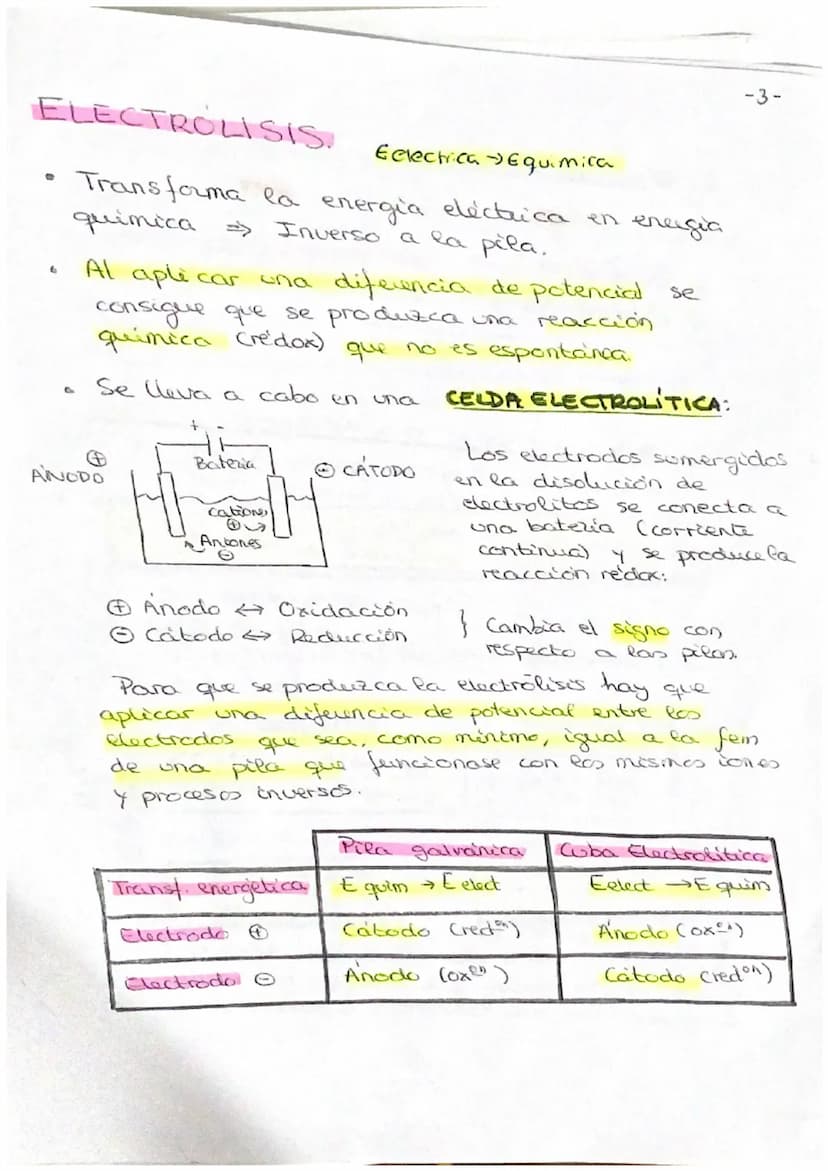 -3-
ELECTRÓLISIS.
Eelectrica → Equimica
• Transforma la energía eléctrica en energía
química ⇒ Inverso a la pila.
• Al aplicar una diferencia de potencial se
consigue que se produzca una reacción
química (rédox) que no es espontánea.
• Se lleva a cabo en una CELDA ELECTROLÍTICA:
+ -
Batería
⊕
ÁNODO
⊖ CÁTODO
cationes
⊕
Aniones
⊖
Los electrodos sumergidos
en la disolución de
electrolitos se conecta a
una batería (corriente
continua) y se produce la
reacción rédox:
⊕ Ánodo ↔ Oxidación
⊖ Cátodo ↔ Reducción
} Cambia el signo con
respecto a las pilas.
Para que se produzca la electrólisis hay que
aplicar una diferencia de potencial entre los
electrodos que sea, como mínimo, igual a la fem
de una pila que funcionase con los mismos iones
y procesos inversos.
Pila galvánica Cuba Electrolítica
Transf. energética E quim → E elect Eelect → E quim
Electrodo ⊕ Cátodo (redón) Ánodo (oxón)
Electrodo ⊖ Ánodo (oxón) Cátodo (redón)